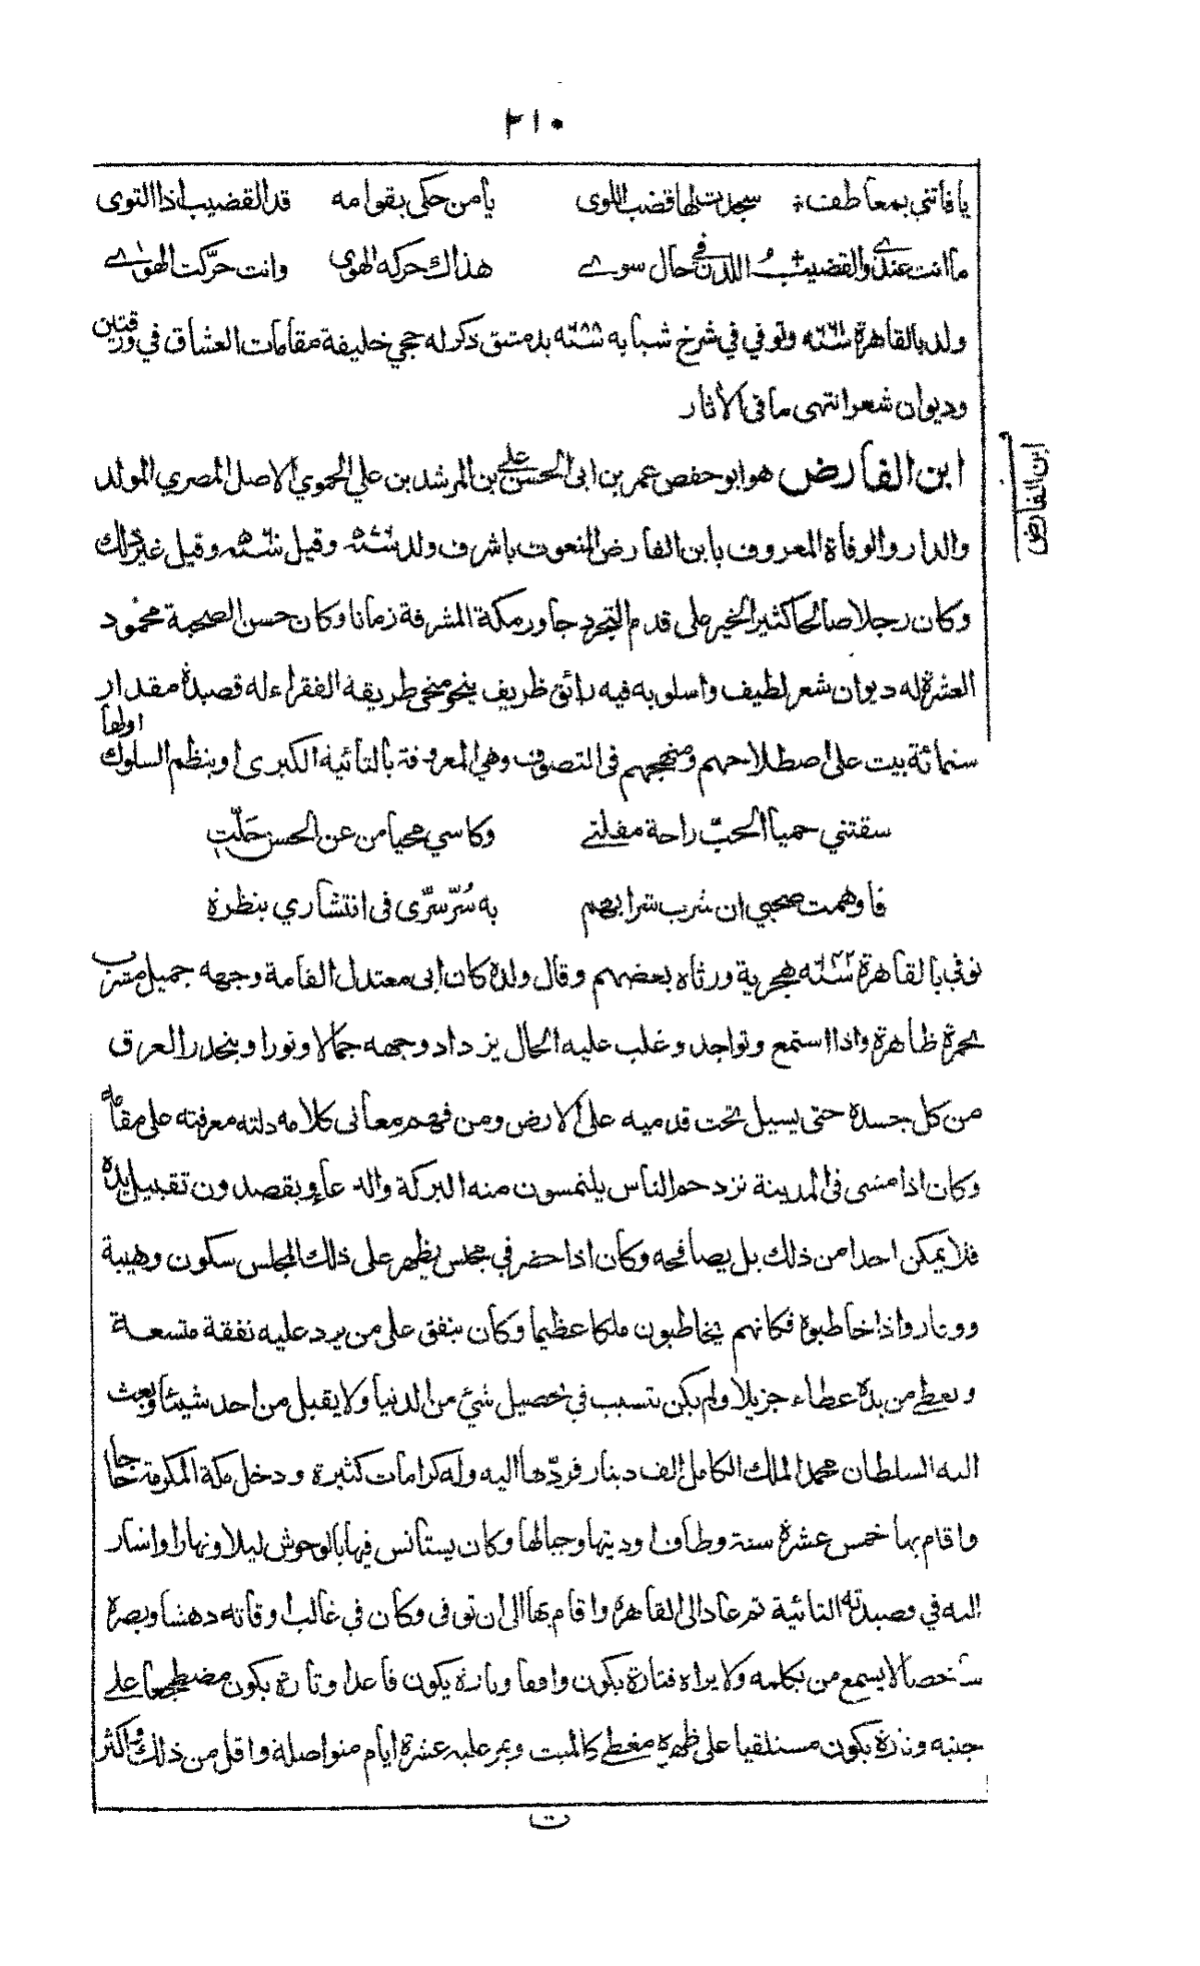 ٢١٠
يا فاتني بمعاطف سجدت لها قضب اللوى يا من حكى بقوامه قد القضيب اذا التوى
ما انت عندي والقضيب اللدن في حال سوى هذاك حركه الهوى وانت حرّكت الهوى
ولد بالقاهرة سنة ٦٦١ وتوفي في شرخ شبابه سنة ٦٨٨ بدمشق ذكر له حجي خليفة مقامات العشاق في ورقتين
وديوان شعر انتهى ما في الآثار
ابن الفارض
ابن الفارض هو ابو حفص عمر بن ابى الحسن علي بن المرشد بن علي الحموي الاصل المصري المولد
والدار والوفاة المعروف بابن الفارض المنعوت باشرف ولد سنة وقيل سنة وقيل غير ذلك
وكان رجلا صالحا كثير الخير على قدم التجرد جاور مكة المشرفة زمانا وكان حسن الصحبة محمود
العشرة له ديوان شعر لطيف واسلوبه فيه رائق ظريف ينحو منحى طريقة الفقراء له قصيدة مقدار
ستمائة بيت على اصطلاحهم ومنهجهم فى التصوف وهي المعروفة بالتائية الكبرى او بنظم السلوك اولها
سقتني حميا الحبّ راحة مقلتي وكاسي محيا من عن الحسن جَلّتِ
فاوهمت صحبي ان شرب شرابهم به سُرّ سرّى فى انتشاري بنظرة
توفي بالقاهرة سنة ٦٣٢ هجرية ورثاه بعضهم وقال ولده كان ابى معتدل القامة وجهه جميل مشرب
بحمرة ظاهرة واذا استمع وتواجد وغلب عليه الحال يزداد وجهه جمالا ونورا وينحدر العرق
من كل جسده حتى يسيل تحت قدميه على الارض ومن فهم معانى كلامه دلته معرفته على مقامه
وكان اذا مشى فى المدينة تزدحم الناس يلتمسون منه البركة والدعاء ويقصدون تقبيل يده
فلا يمكن احدا من ذلك بل يصافحه وكان اذا حضر في مجلس يظهر على ذلك المجلس سكون وهيبة
ووقار واذا خاطبوه فكانهم يخاطبون ملكا عظيما وكان ينفق على من يرد عليه نفقة متسعة
ويعطي من يده عطاء جزيلا ولم يكن يتسبب في تحصيل شئ من الدنيا ولا يقبل من احد شيئا وبعث
اليه السلطان محمد الملك الكامل الف دينار فردّها اليه وله كرامات كثيرة ودخل مكة المكرمة حاجا
واقام بها خمس عشرة سنة وطاف اوديتها وجبالها وكان يستأنس فيها بالوحوش ليلا ونهارا واشار
اليه في قصيدته التائية ثم عاد الى القاهرة واقام بها الى ان توفى وكان في غالب اوقاته دهشا وبصره
شاخصا لا يسمع من يكلمه ولا يراه فتارة يكون واقفا وتارة يكون قاعدا وتارة يكون مضطجعا على
جنبه وتارة يكون مستلقيا على ظهره مغطى كالميت ويمر عليه عشرة ايام متواصلة واقل من ذلك واكثر
ت